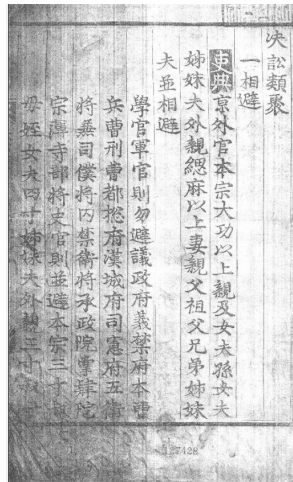 决訟類聚
一相避
吏典京外官本宗大功以上親及女夫孫女夫
姉妹夫外親緦麻以上妻親父祖父兄弟姉妹
夫並相避
學官軍官則勿避議政府義禁府本曹
兵曹刑曹都摠府漢城府司憲府五衛
將兼司僕將内禁衛將承政院掌隷院
宗簿寺部將史官則並避本宗三寸
母姪女夫四寸姉妹夫外親三寸
127428